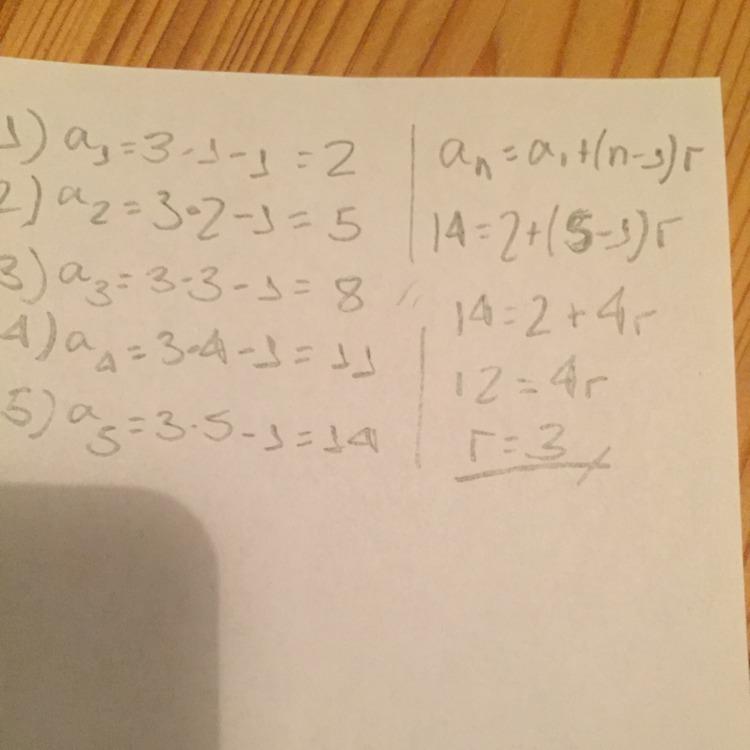 1) a₁=3·1-1=2
2) a₂=3·2-1=5
3) a₃=3·3-1=8
4) a₄=3·4-1=11
5) a₅=3·5-1=14
aₙ=a₁+(n-1)r
14=2+(5-1)r
14=2+4r
12=4r
r=3